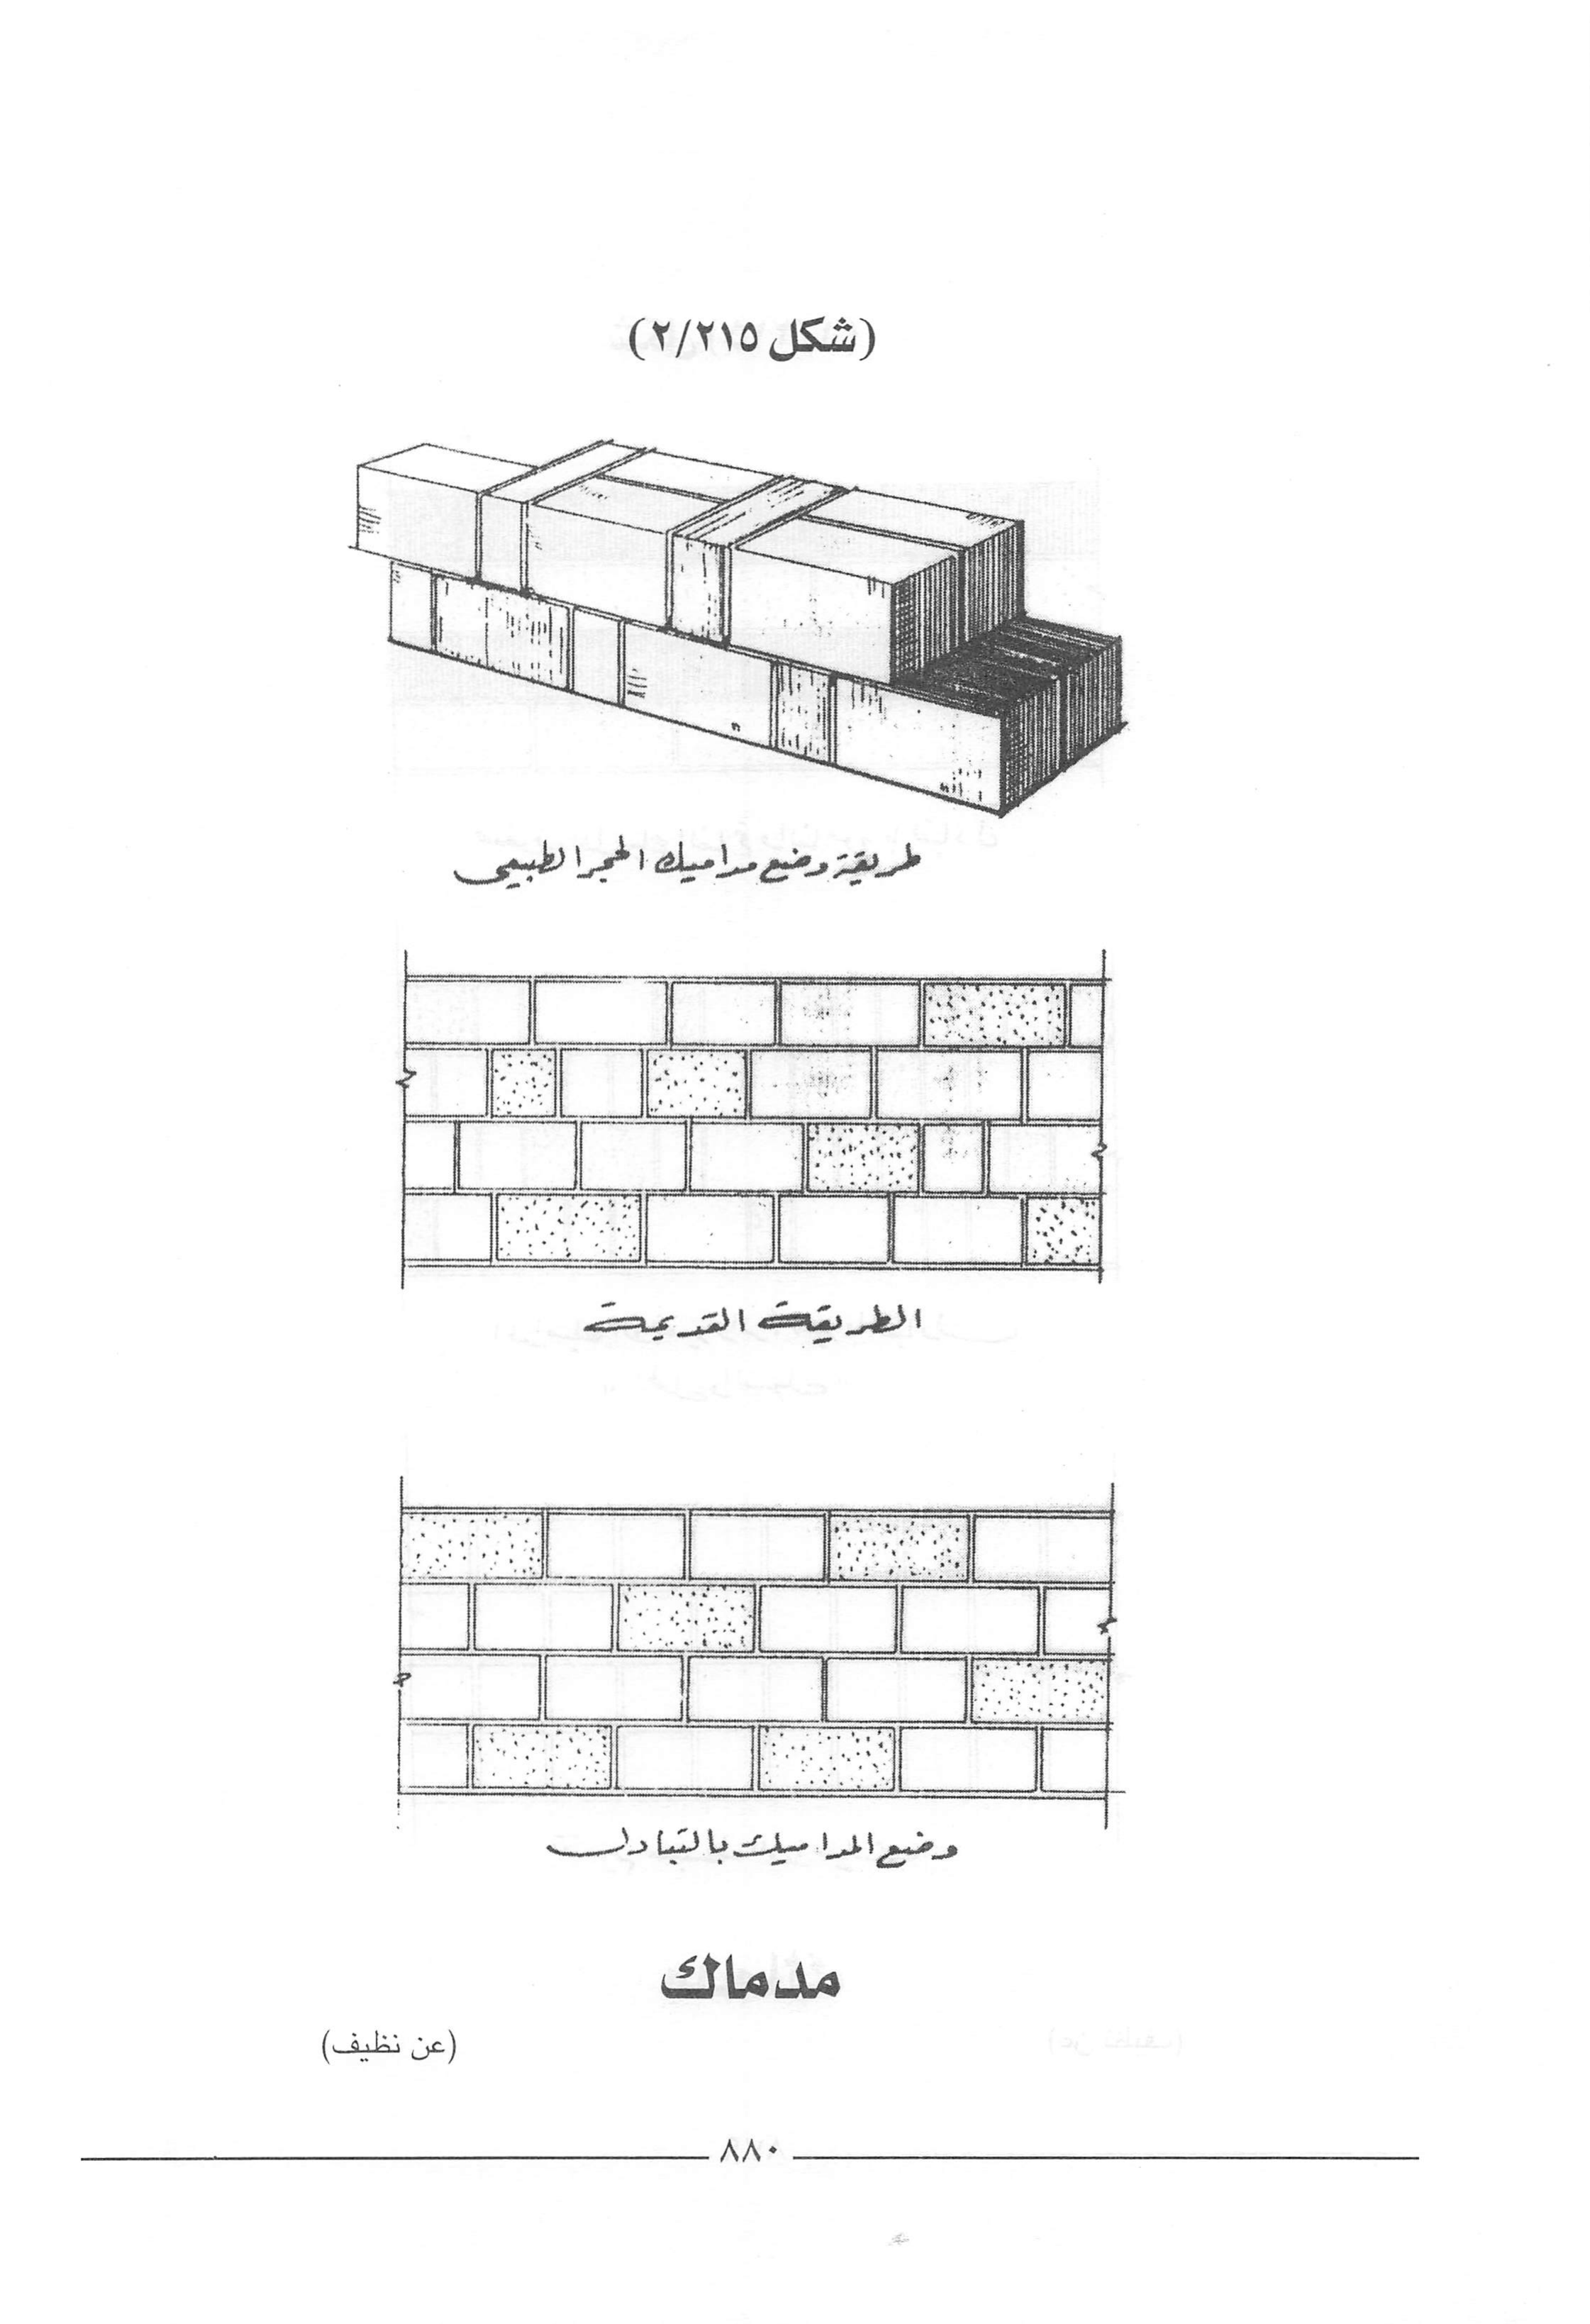 (شكل ٢/٢١٥)
طريقة وضع مداميك الحجر الطبيعى
الطريقة القديمة
وضع المداميك بالتبادل
مدماك
(عن نظيف)
٨٨٠